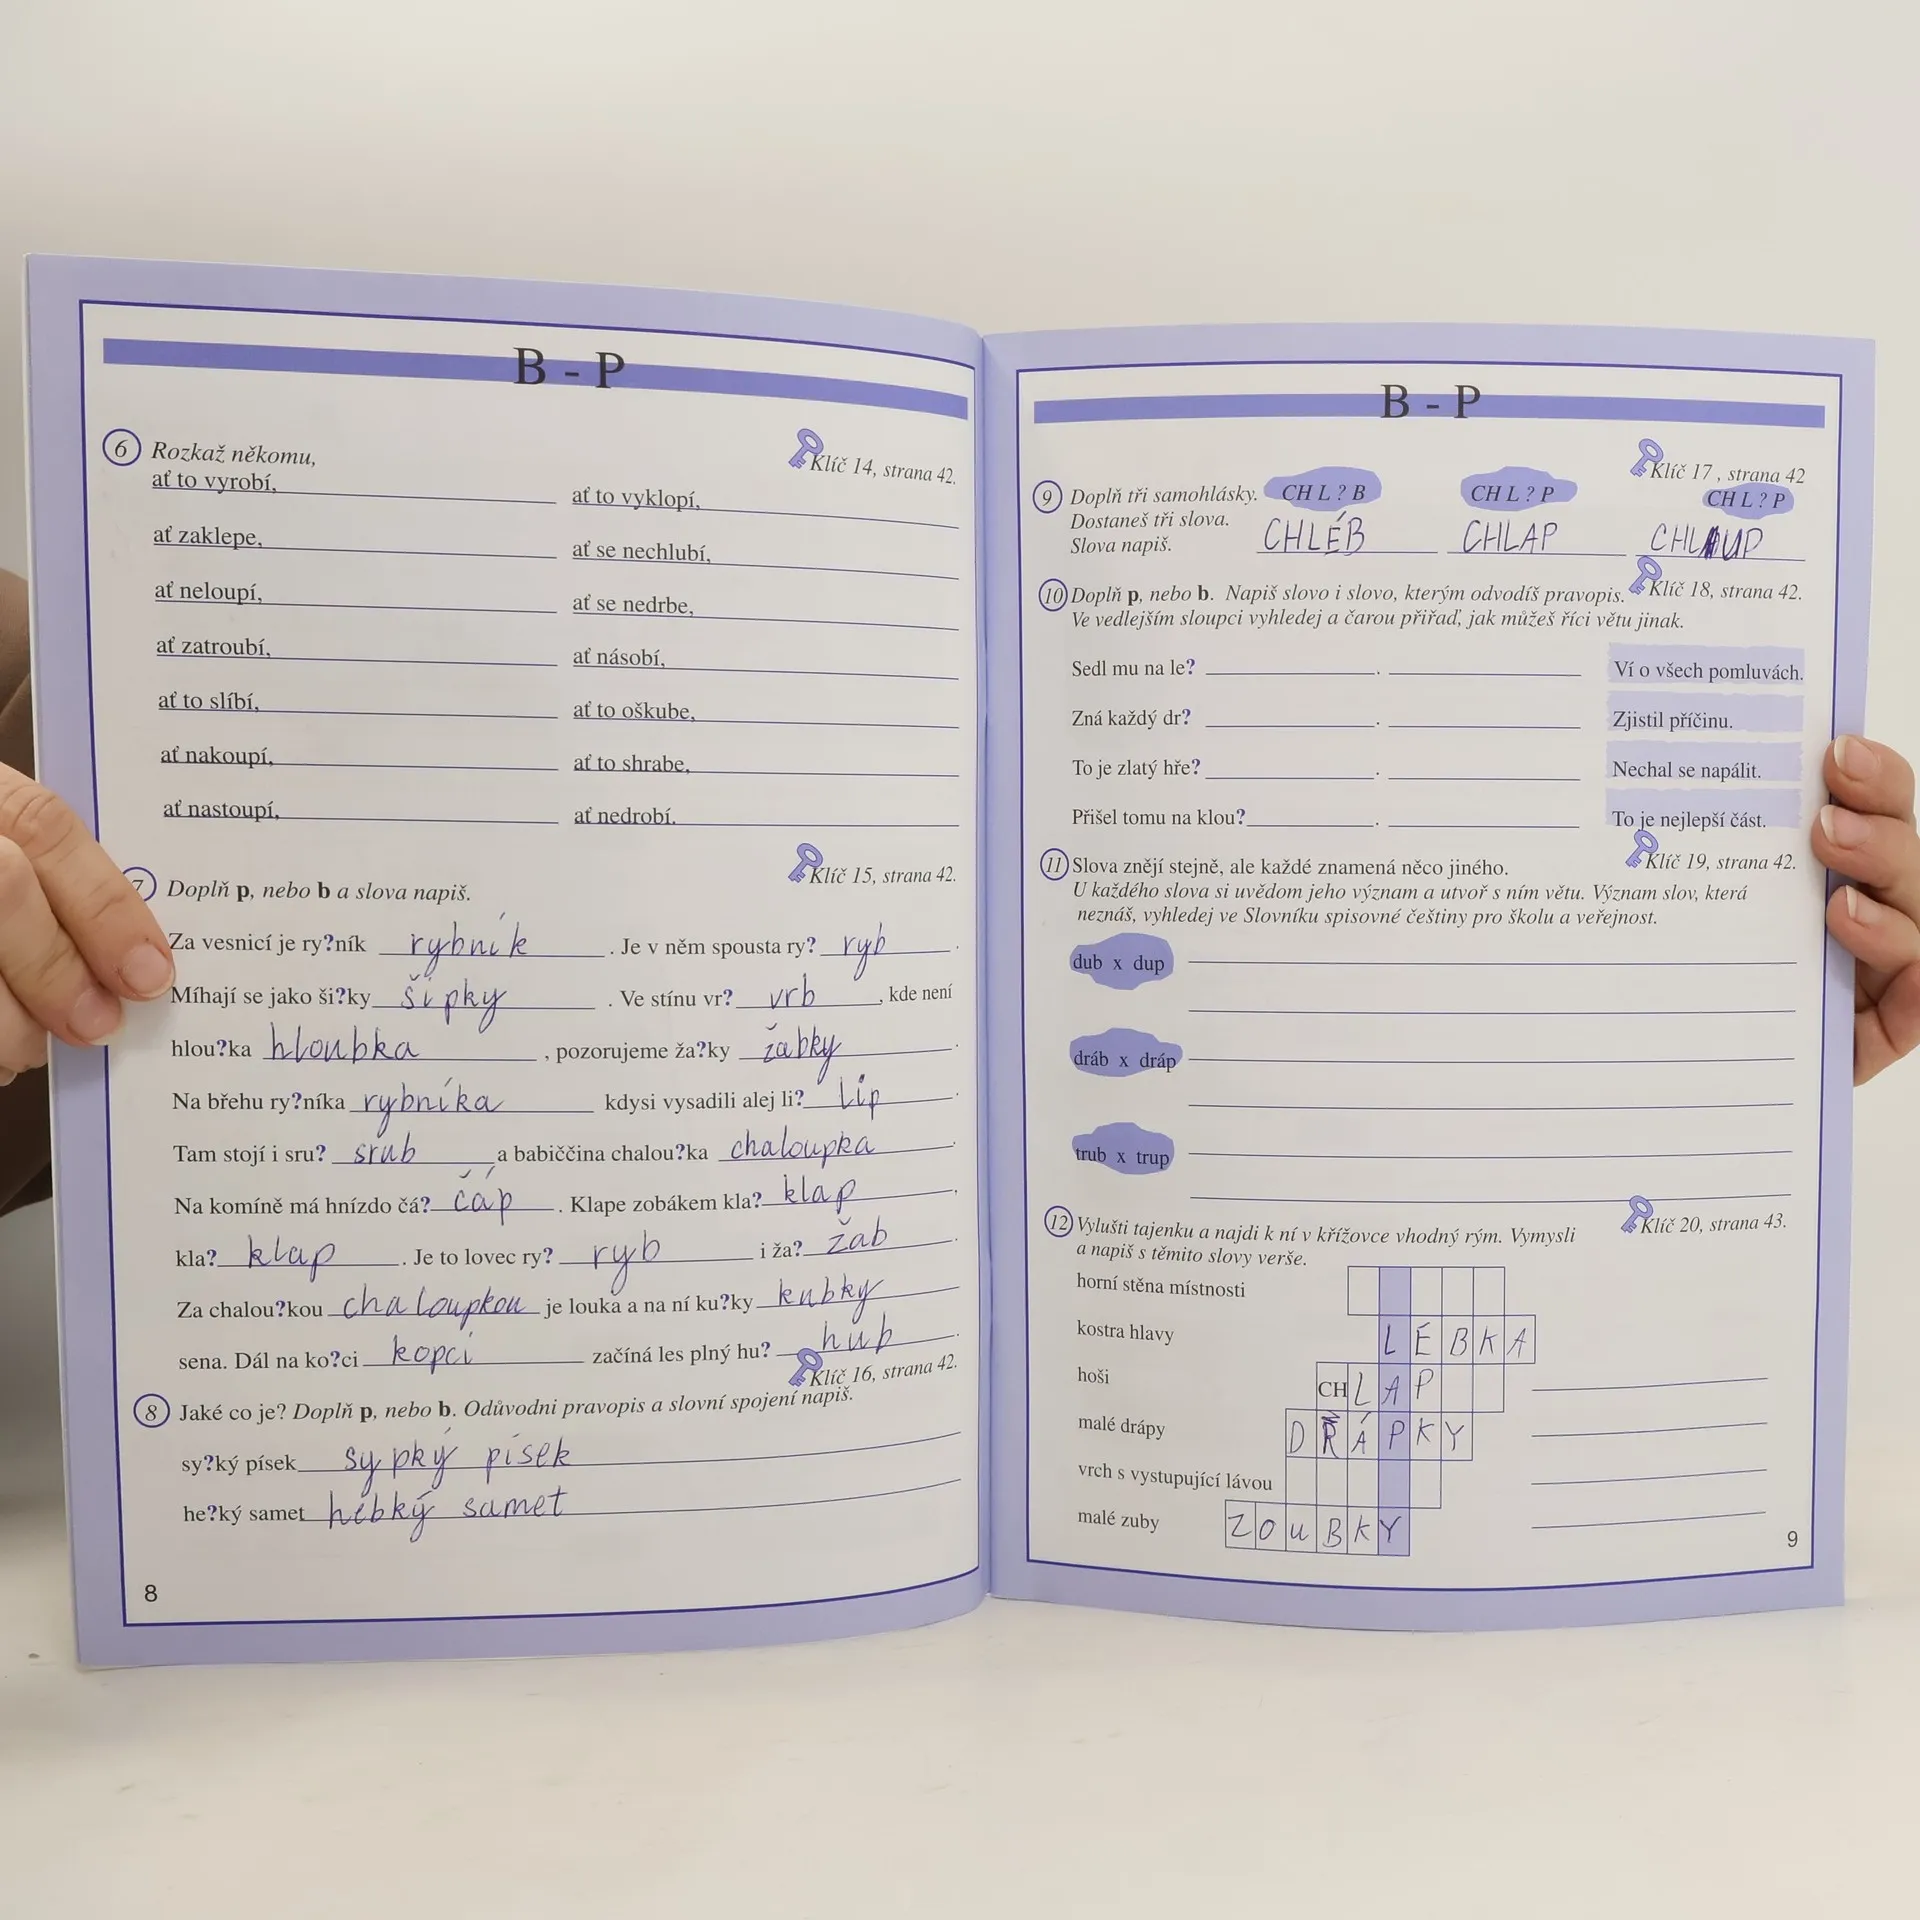 B - P
6 Rozkaž někomu,
Klíč 14, strana 42.
ať to vyrobí, ať to vyklopí,
ať zaklepe, ať se nechlubí,
ať neloupí, ať se nedrbe,
ať zatroubí, ať násobí,
ať to slíbí, ať to oškube,
ať nakoupí, ať to shrabe,
ať nastoupí, ať nedrobí.
Klíč 15, strana 42.
7 Doplň p, nebo b a slova napiš.
Za vesnicí je ry?ník rybník . Je v něm spousta ry? ryb .
Míhají se jako ši?ky šipky . Ve stínu vr? vrb , kde není
hlou?ka hloubka , pozorujeme ža?ky žabky .
Na břehu ry?níka rybníka kdysi vysadili alej li? lip .
Tam stojí i sru? srub a babiččina chalou?ka chaloupka .
Na komíně má hnízdo čá? čáp . Klape zobákem kla? klap ,
kla? klap . Je to lovec ry? ryb i ža? žab .
Za chalou?kou chaloupkou je louka a na ní ku?ky kubky
sena. Dál na ko?ci kopci začíná les plný hu? hub .
Klíč 16, strana 42.
8 Jaké co je? Doplň p, nebo b. Odůvodni pravopis a slovní spojení napiš.
sy?ký písek sypký písek
he?ký samet hebký samet
8
B - P
Klíč 17 , strana 42
9 Doplň tři samohlásky. CH L ? B CH L ? P CH L ? P
Dostaneš tři slova.
Slova napiš. CHLÉB CHLAP CHLUP
10 Doplň p, nebo b. Napiš slovo i slovo, kterým odvodíš pravopis. Klíč 18, strana 42.
Ve vedlejším sloupci vyhledej a čarou přiřaď, jak můžeš říci větu jinak.
Sedl mu na le? . Ví o všech pomluvách.
Zná každý dr? . Zjistil příčinu.
To je zlatý hře? . Nechal se napálit.
Přišel tomu na klou? . To je nejlepší část.
11 Slova znějí stejně, ale každé znamená něco jiného. Klíč 19, strana 42.
U každého slova si uvědom jeho význam a utvoř s ním větu. Význam slov, která
neznáš, vyhledej ve Slovníku spisovné češtiny pro školu a veřejnost.
dub x dup
dráb x dráp
trub x trup
12 Vylušti tajenku a najdi k ní v křížovce vhodný rým. Vymysli Klíč 20, strana 43.
a napiš s těmito slovy verše.
horní stěna místnosti
kostra hlavy L E B K A
hoši CH L A P
malé drápy D R Á P K Y
vrch s vystupující lávou
malé zuby Z O U B K Y
9